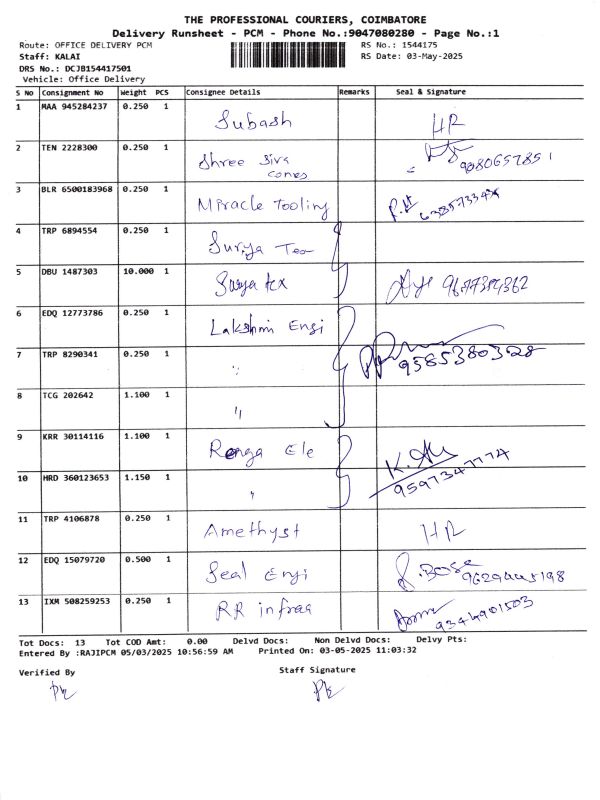 THE PROFESSIONAL COURIERS, COIMBATORE
Delivery Runsheet - PCM - Phone No.:9047080280 - Page No.:1
Route: OFFICE DELIVERY PCM RS No.: 1544175
Staff: KALAI RS Date: 03-May-2025
DRS No.: DCJB154417501
Vehicle: Office Delivery
S No Consignment No Weight PCS Consignee Details Remarks Seal & Signature
1 MAA 945284237 0.250 1 Subash HR
2 TEN 2228300 0.250 1 Shree Siva
cones
3 BLR 6500183968 0.250 1 Miracle Tooling
4 TRP 6894554 0.250 1 Surya Tex
5 DBU 1487303 10.000 1 Surya tex
6 EDQ 12773786 0.250 1 Lakshmi Engi
7 TRP 8290341 0.250 1 " 9585380328
8 TCG 202642 1.100 1 "
9 KRR 30114116 1.100 1 Renga Ele
10 HRD 360123653 1.150 1 " 9597347774
11 TRP 4106878 0.250 1 Amethyst HR
12 EDQ 15079720 0.500 1 Seal Engi
13 IXM 508259253 0.250 1 RR infraa 9344901503
Tot Docs: 13 Tot COD Amt: 0.00 Delvd Docs: Non Delvd Docs: Delvy Pts:
Entered By :RAJIPCM 05/03/2025 10:56:59 AM Printed On: 03-05-2025 11:03:32
Verified By Staff Signature